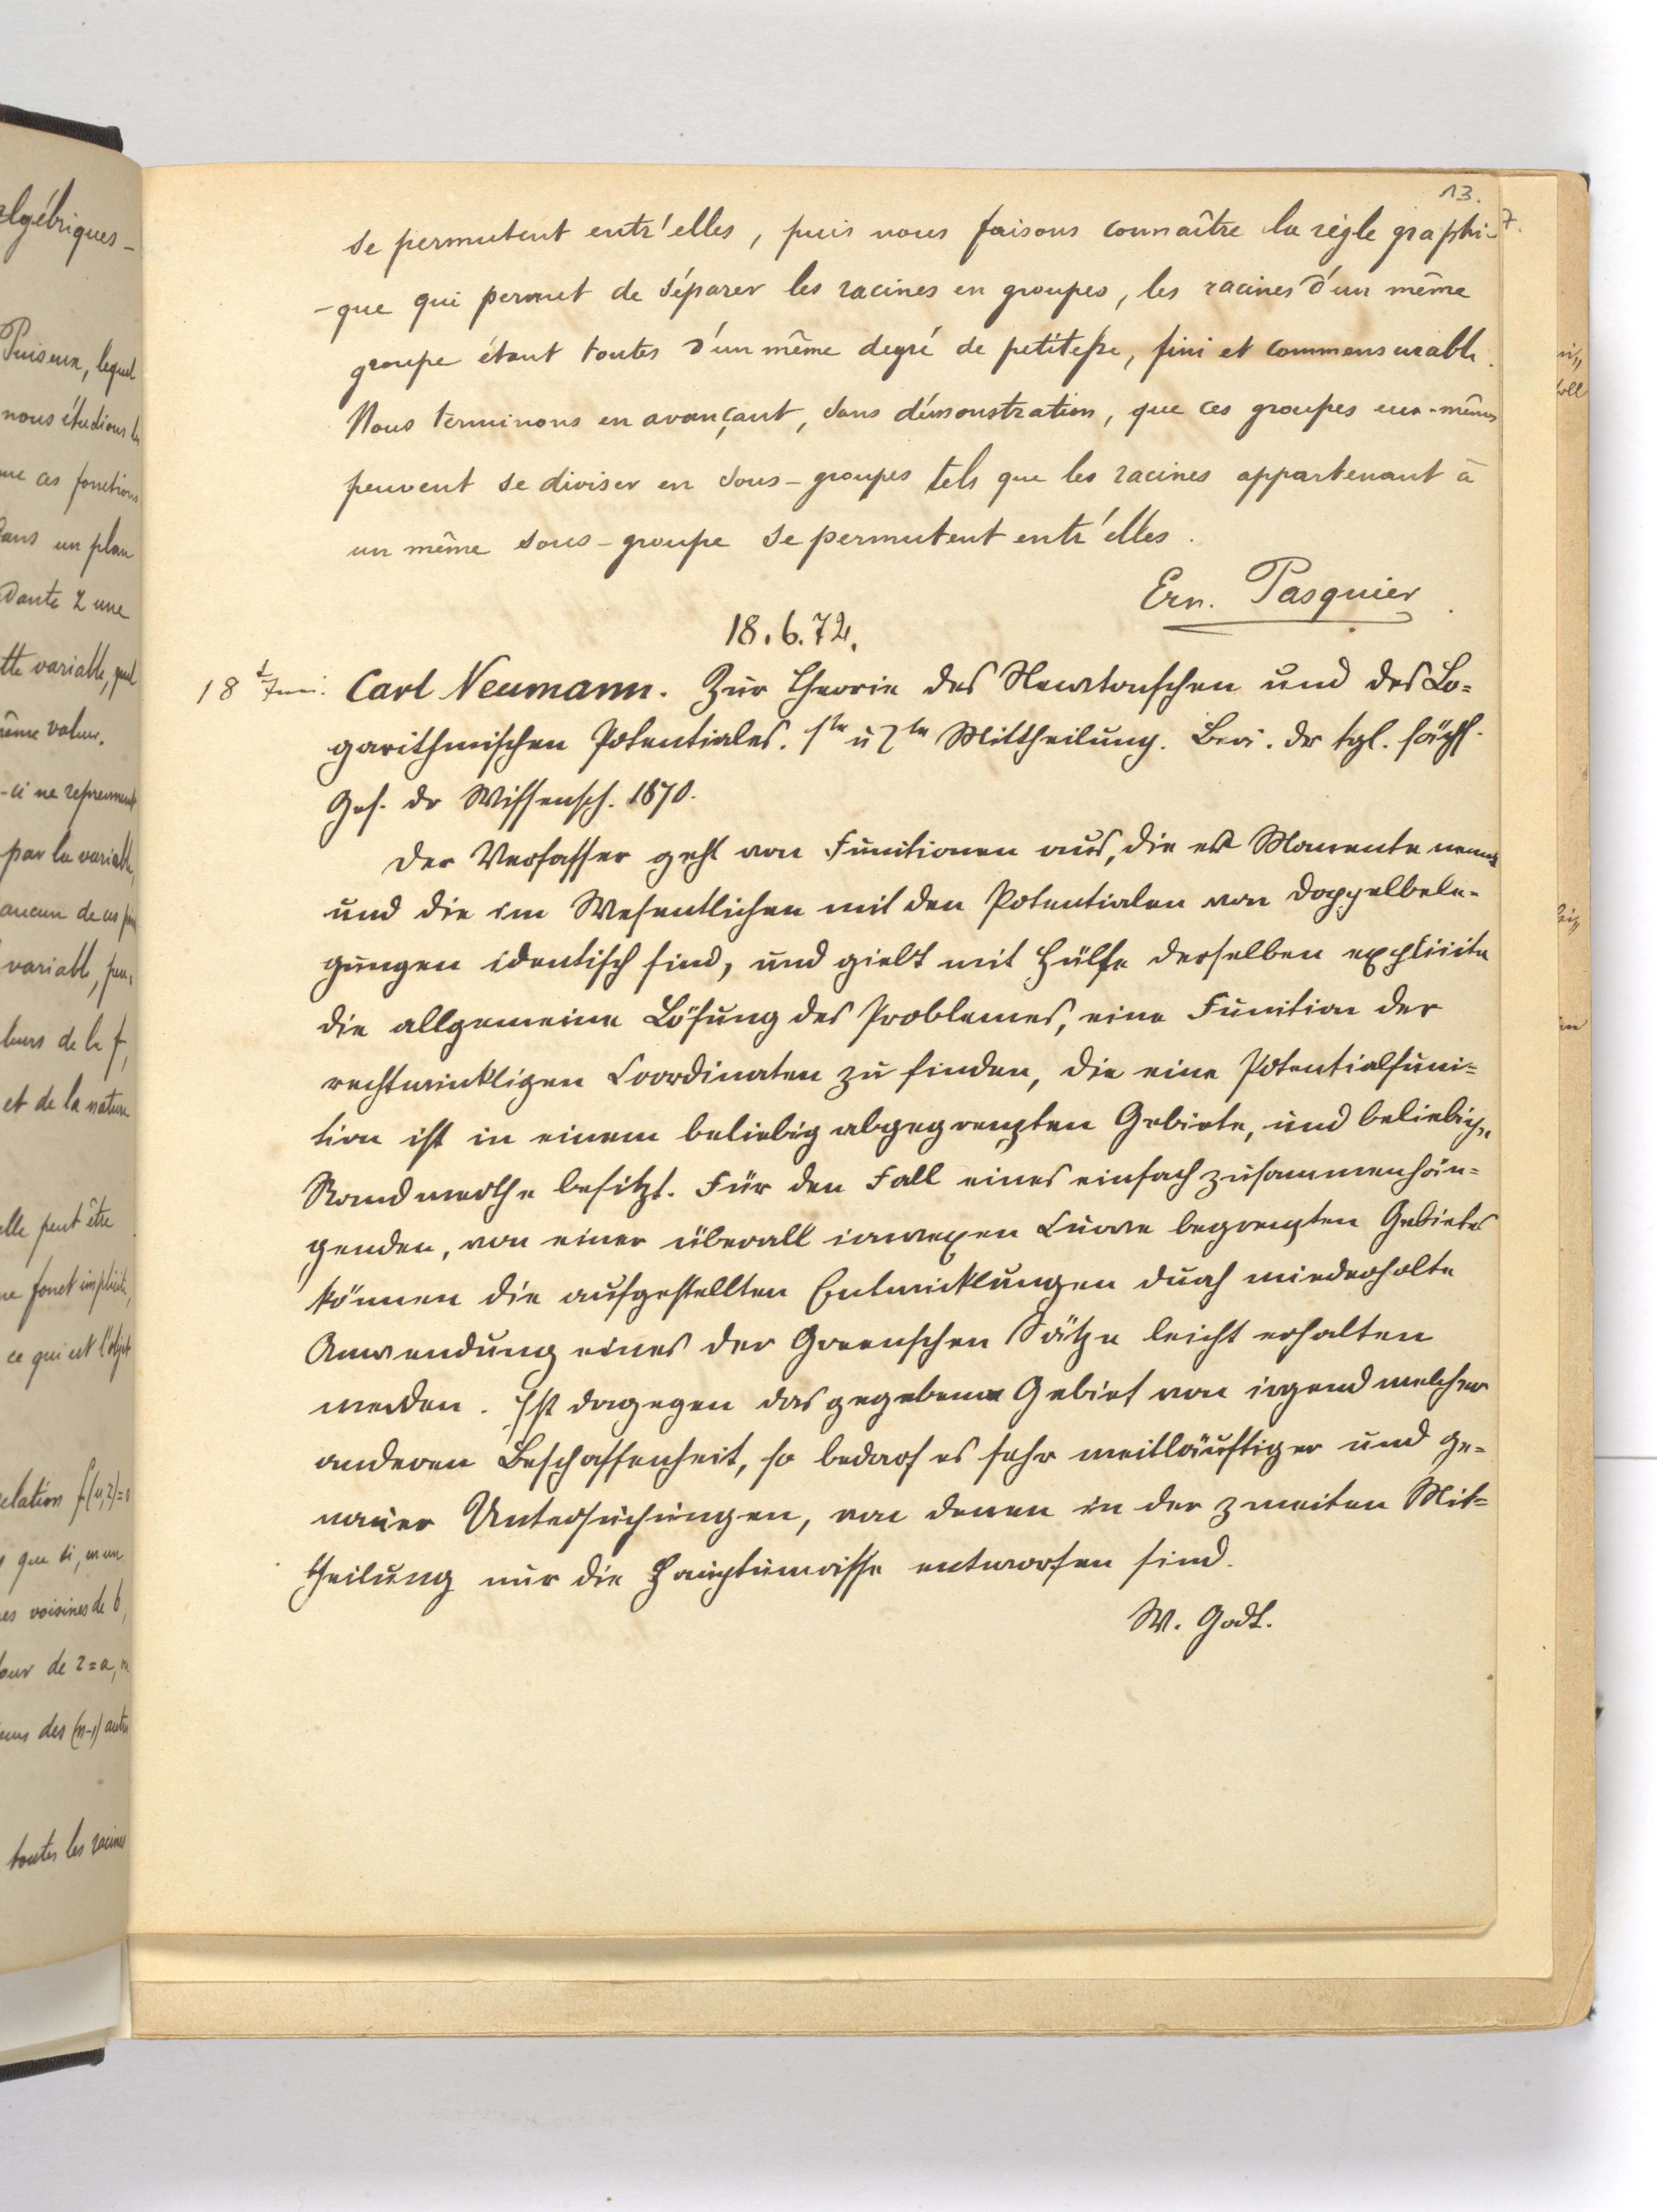 13.
7.
se permutent entr'elles, puis nous faisons connaître la règle graphi-
-que qui permet de séparer les racines en groupes, les racines d'un même
groupe étant toutes d'un même degré de petitesse, fini et commensurable.
Nous terminons en avançant, sans démonstration, que ces groupes eux-mêmes
peuvent se diviser en sous-groupes tels que les racines appartenant à
un même sous-groupe se permutent entr'elles.
Ern. Pasquier.
18.6.72.
18 Juni. Carl Neumann. Zur Theorie des Newtonschen und des Lo-
garithmischen Potentiales. 1te u 2te Mittheilung. Ber. der kgl. sächs.
Ges. der Wissensch. 1870.
Der Verfasser geht von Functionen aus, die er Momente nennt
und die im Wesentlichen mit den Potentialen von Doppelbele-
gungen identisch sind, und giebt mit Hülfe derselben explicite
die allgemeine Lösung des Problemes, eine Function der
rechtwinkligen Coordinaten zu finden, die eine Potentialfunc-
tion ist in einem beliebig abgegrenzten Gebiete, und beliebige
Randwerthe besitzt. Für den Fall eines einfach zusammenhän-
genden, von einer überall convexen Curve begrenzten Gebietes
können die aufgestellten Entwicklungen durch wiederholte
Anwendung eines der Greenschen Sätze leicht erhalten
werden. Ist dagegen das gegebene Gebiet von irgend welcher
anderen Beschaffenheit, so bedarf es sehr weitläuftiger und ge-
nauer Untersuchungen, von denen in der zweiten Mit-
theilung nur die Hauptumrisse entworfen sind.
W. Godt.
algébriques-
Puiseux, lequel
nous étudions les
que ces fonctions
dans un plan
dante z une
tte variable, quel
même valeur.
-ci ne reprennent
par la variable,
aucun de ces
variable,
leurs de la f,
et de la nature
elle peut être
ne fonct implicite,
ce qui est l'objet
relation f(u,z)=0
que si, en un
res voisines de b,
tour de z=a,
des (n-1) autres
toutes les racines